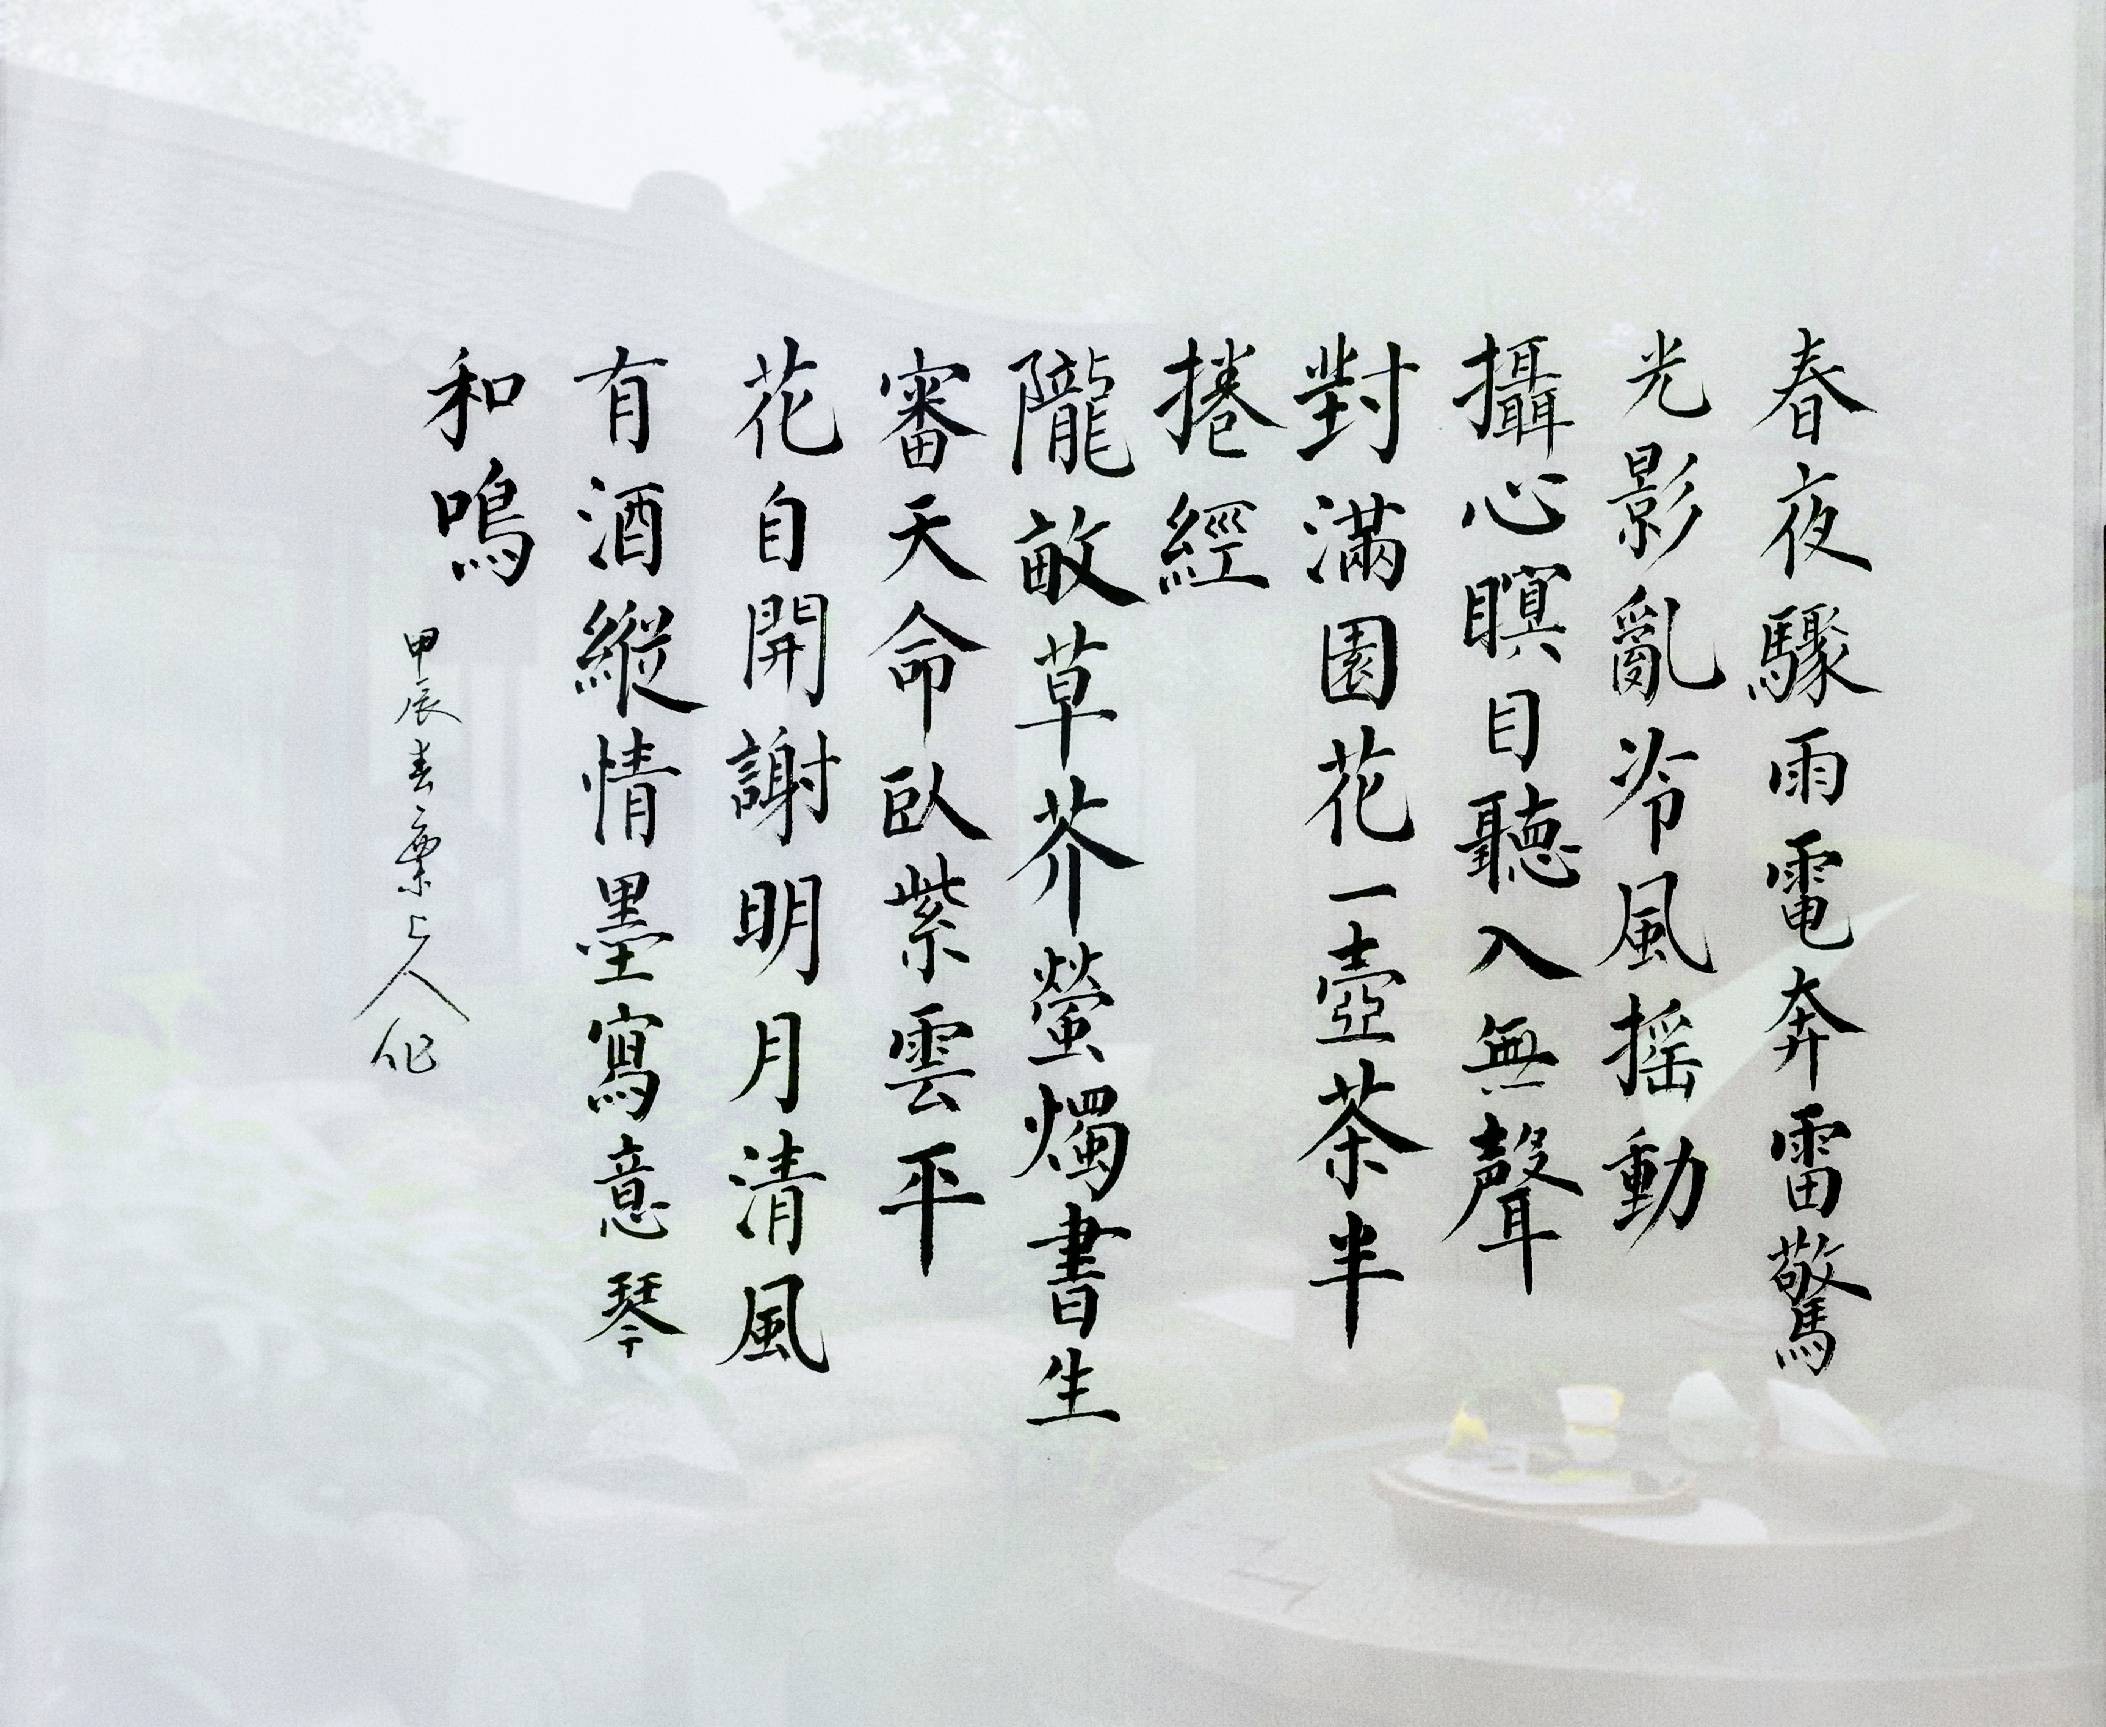 春夜驟雨電奔雷驚
光影亂冷風搖動
攝心瞑目聽入無聲
對滿園花一壺茶半
捲經
隴畝草芥螢燭書生
審天命臥紫雲平
花自開謝明月清風
有酒縱情墨寫意琴
和鳴
甲辰春棄上人作